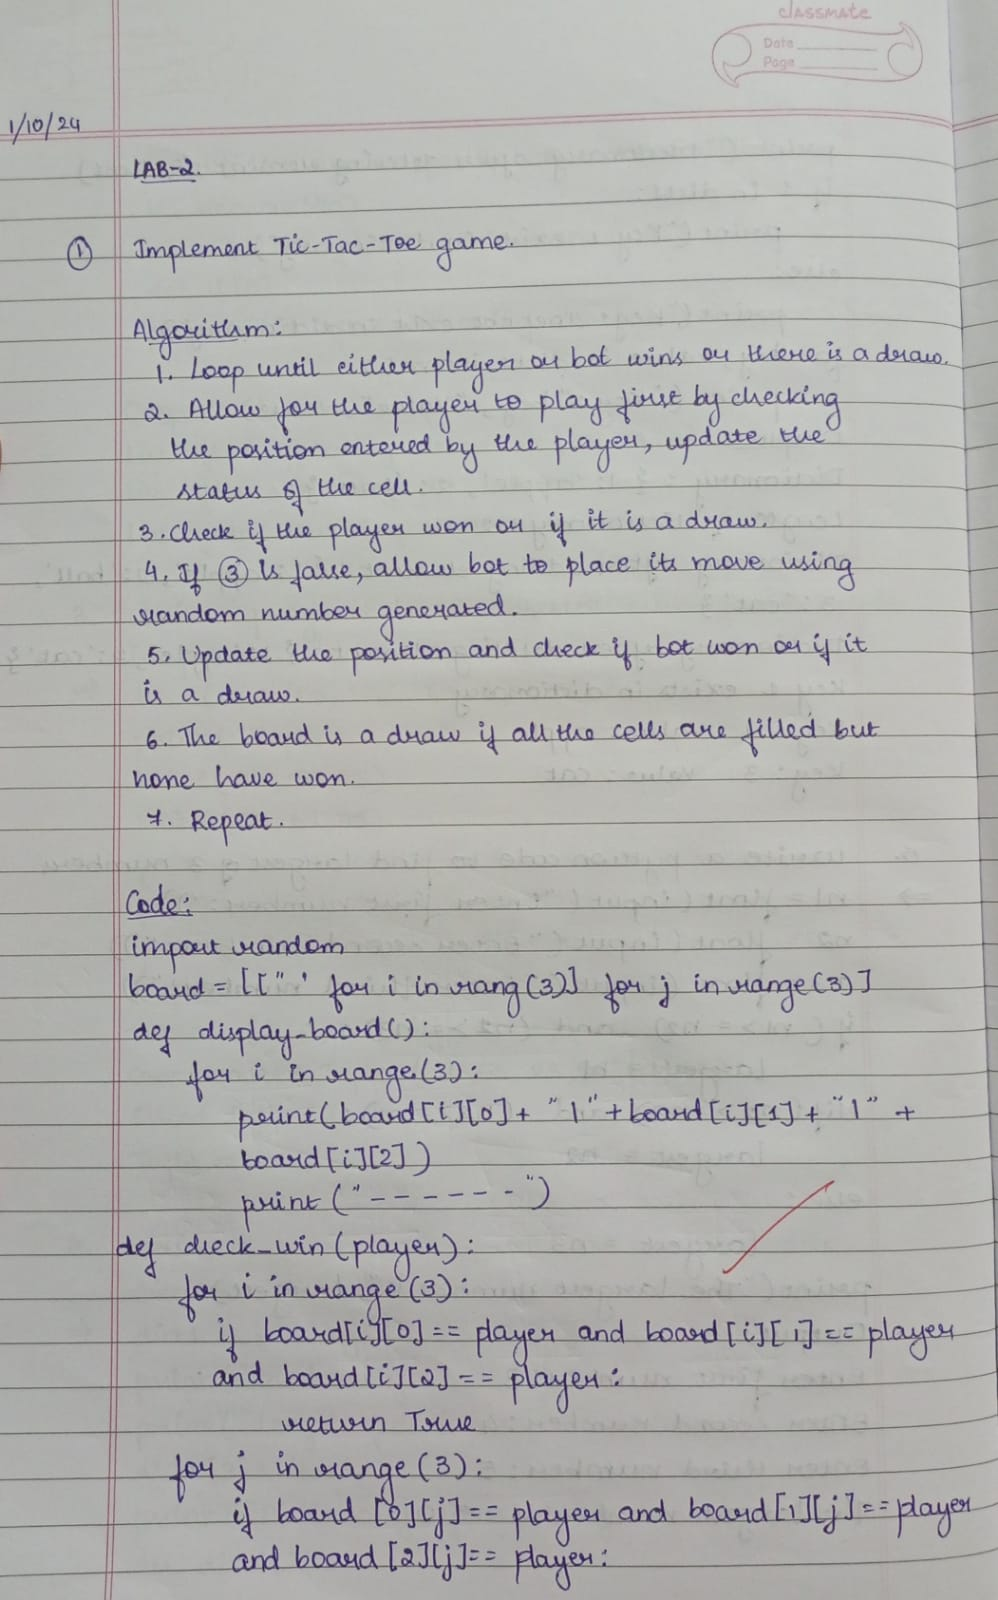 classmate
Date
Page
1/10/24
LAB-2.
① Implement Tic-Tac-Toe game.
Algorithm:
1. Loop until either player or bot wins or there is a draw.
2. Allow for the player to play first by checking
the position entered by the player, update the
status of the cell.
3. Check if the player won or if it is a draw.
4. If ③ is false, allow bot to place its move using
random number generated.
5. Update the position and check if bot won or if it
is a draw.
6. The board is a draw if all the cells are filled but
none have won.
7. Repeat.
Code:
import random
board = [[" ' for i in rang(3)] for j in range(3)]
def display_board():
for i in range(3):
print(board[i][0] + "|" + board[i][1] + "|" +
board[i][2])
print("------")
def check_win(player):
for i in range(3):
if board[i][0] == player and board[i][1] == player
and board[i][2] == player:
return True
for j in range(3):
if board [0][j] == player and board[1][j] == player
and board [2][j] == player: